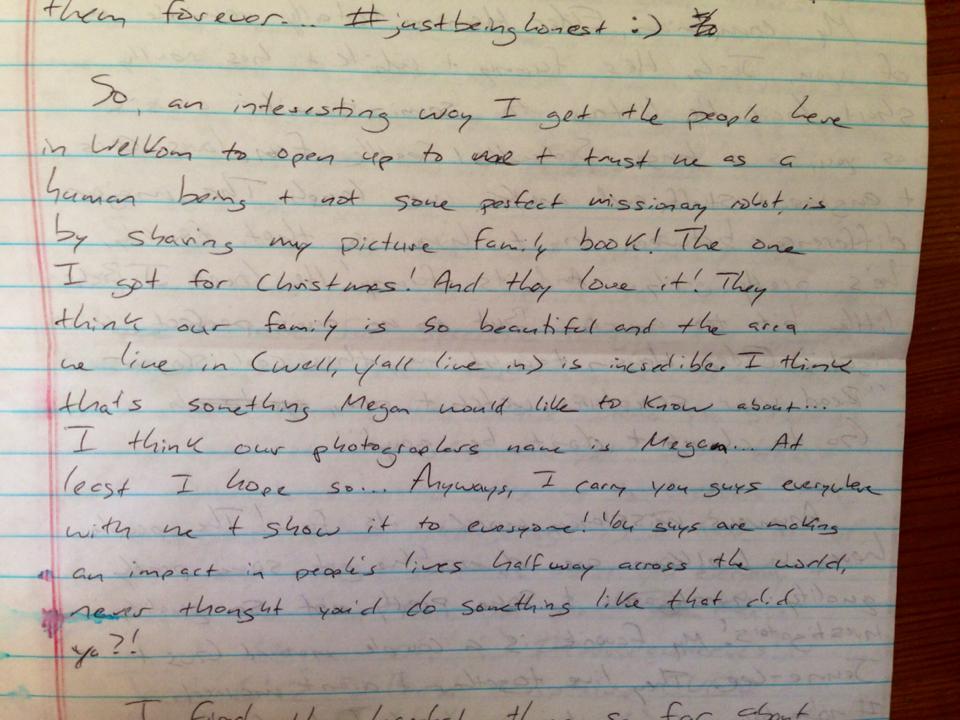 them forever... #justbeinghonest :)
So, an interesting way I get the people here
in Welkom to open up to me + trust me as a
human being + not some perfect missionary robot, is
by sharing my picture family book! The one
I got for Christmas! And they love it! They
think our family is so beautiful and the area
we live in (well, y'all live in) is incredible. I think
that's something Megan would like to know about...
I think our photographers name is Megan... At
least I hope so... Anyways, I carry you guys everywhere
with me + show it to everyone! You guys are making
an impact in people's lives halfway across the world,
never thought you'd do something like that did
ya?!
I find the hardest thing so far about